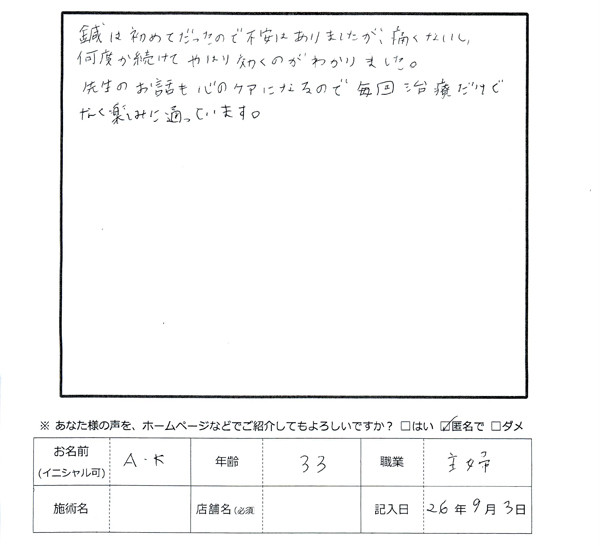 鍼は初めてだったので不安はありましたが、痛くないし、
何度か続けてやはり効くのがわかりました。
先生のお話も心のケアになるので毎回治療だけで
なく楽しみに通っています。
※ あなた様の声を、ホームページなどでご紹介してもよろしいですか？ □はい ☑匿名で □ダメ
お名前 (イニシャル可) A・K 年齢 33 職業 主婦
施術名 店舗名（必須 記入日 26年9月3日